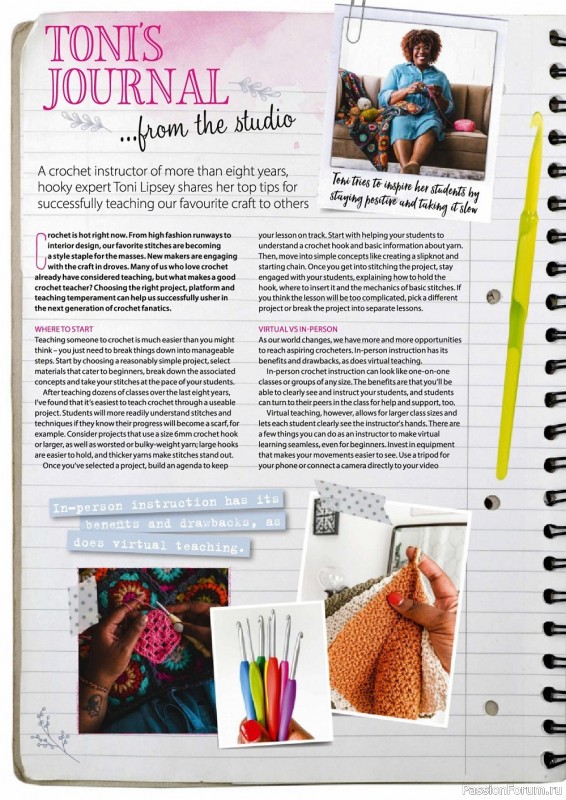 TONI'S
JOURNAL
...from the studio
A crochet instructor of more than eight years,
hooky expert Toni Lipsey shares her top tips for
successfully teaching our favourite craft to others
Toni tries to inspire her students by
staying positive and taking it slow
Crochet is hot right now. From high fashion runways to
interior design, our favorite stitches are becoming
a style staple for the masses. New makers are engaging
with the craft in droves. Many of us who love crochet
already have considered teaching, but what makes a good
crochet teacher? Choosing the right project, platform and
teaching temperament can help us successfully usher in
the next generation of crochet fanatics.
WHERE TO START
Teaching someone to crochet is much easier than you might
think – you just need to break things down into manageable
steps. Start by choosing a reasonably simple project, select
materials that cater to beginners, break down the associated
concepts and take your stitches at the pace of your students.
After teaching dozens of classes over the last eight years,
I've found that it's easiest to teach crochet through a useable
project. Students will more readily understand stitches and
techniques if they know their progress will become a scarf, for
example. Consider projects that use a size 6mm crochet hook
or larger, as well as worsted or bulky-weight yarn; large hooks
are easier to hold, and thicker yarns make stitches stand out.
Once you've selected a project, build an agenda to keep
your lesson on track. Start with helping your students to
understand a crochet hook and basic information about yarn.
Then, move into simple concepts like creating a slipknot and
starting chain. Once you get into stitching the project, stay
engaged with your students, explaining how to hold the
hook, where to insert it and the mechanics of basic stitches. If
you think the lesson will be too complicated, pick a different
project or break the project into separate lessons.
VIRTUAL VS IN-PERSON
As our world changes, we have more and more opportunities
to reach aspiring crocheters. In-person instruction has its
benefits and drawbacks, as does virtual teaching.
In-person crochet instruction can look like one-on-one
classes or groups of any size. The benefits are that you'll be
able to clearly see and instruct your students, and students
can turn to their peers in the class for help and support, too.
Virtual teaching, however, allows for larger class sizes and
lets each student clearly see the instructor's hands. There are
a few things you can do as an instructor to make virtual
learning seamless, even for beginners. Invest in equipment
that makes your movements easier to see. Use a tripod for
your phone or connect a camera directly to your video
In-person instruction has its
benefits and drawbacks, as
does virtual teaching.
PassionForum.ru